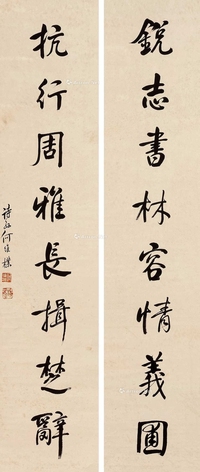 銳志書林容情義圃
抗行周雅長揖楚辭
何維樸